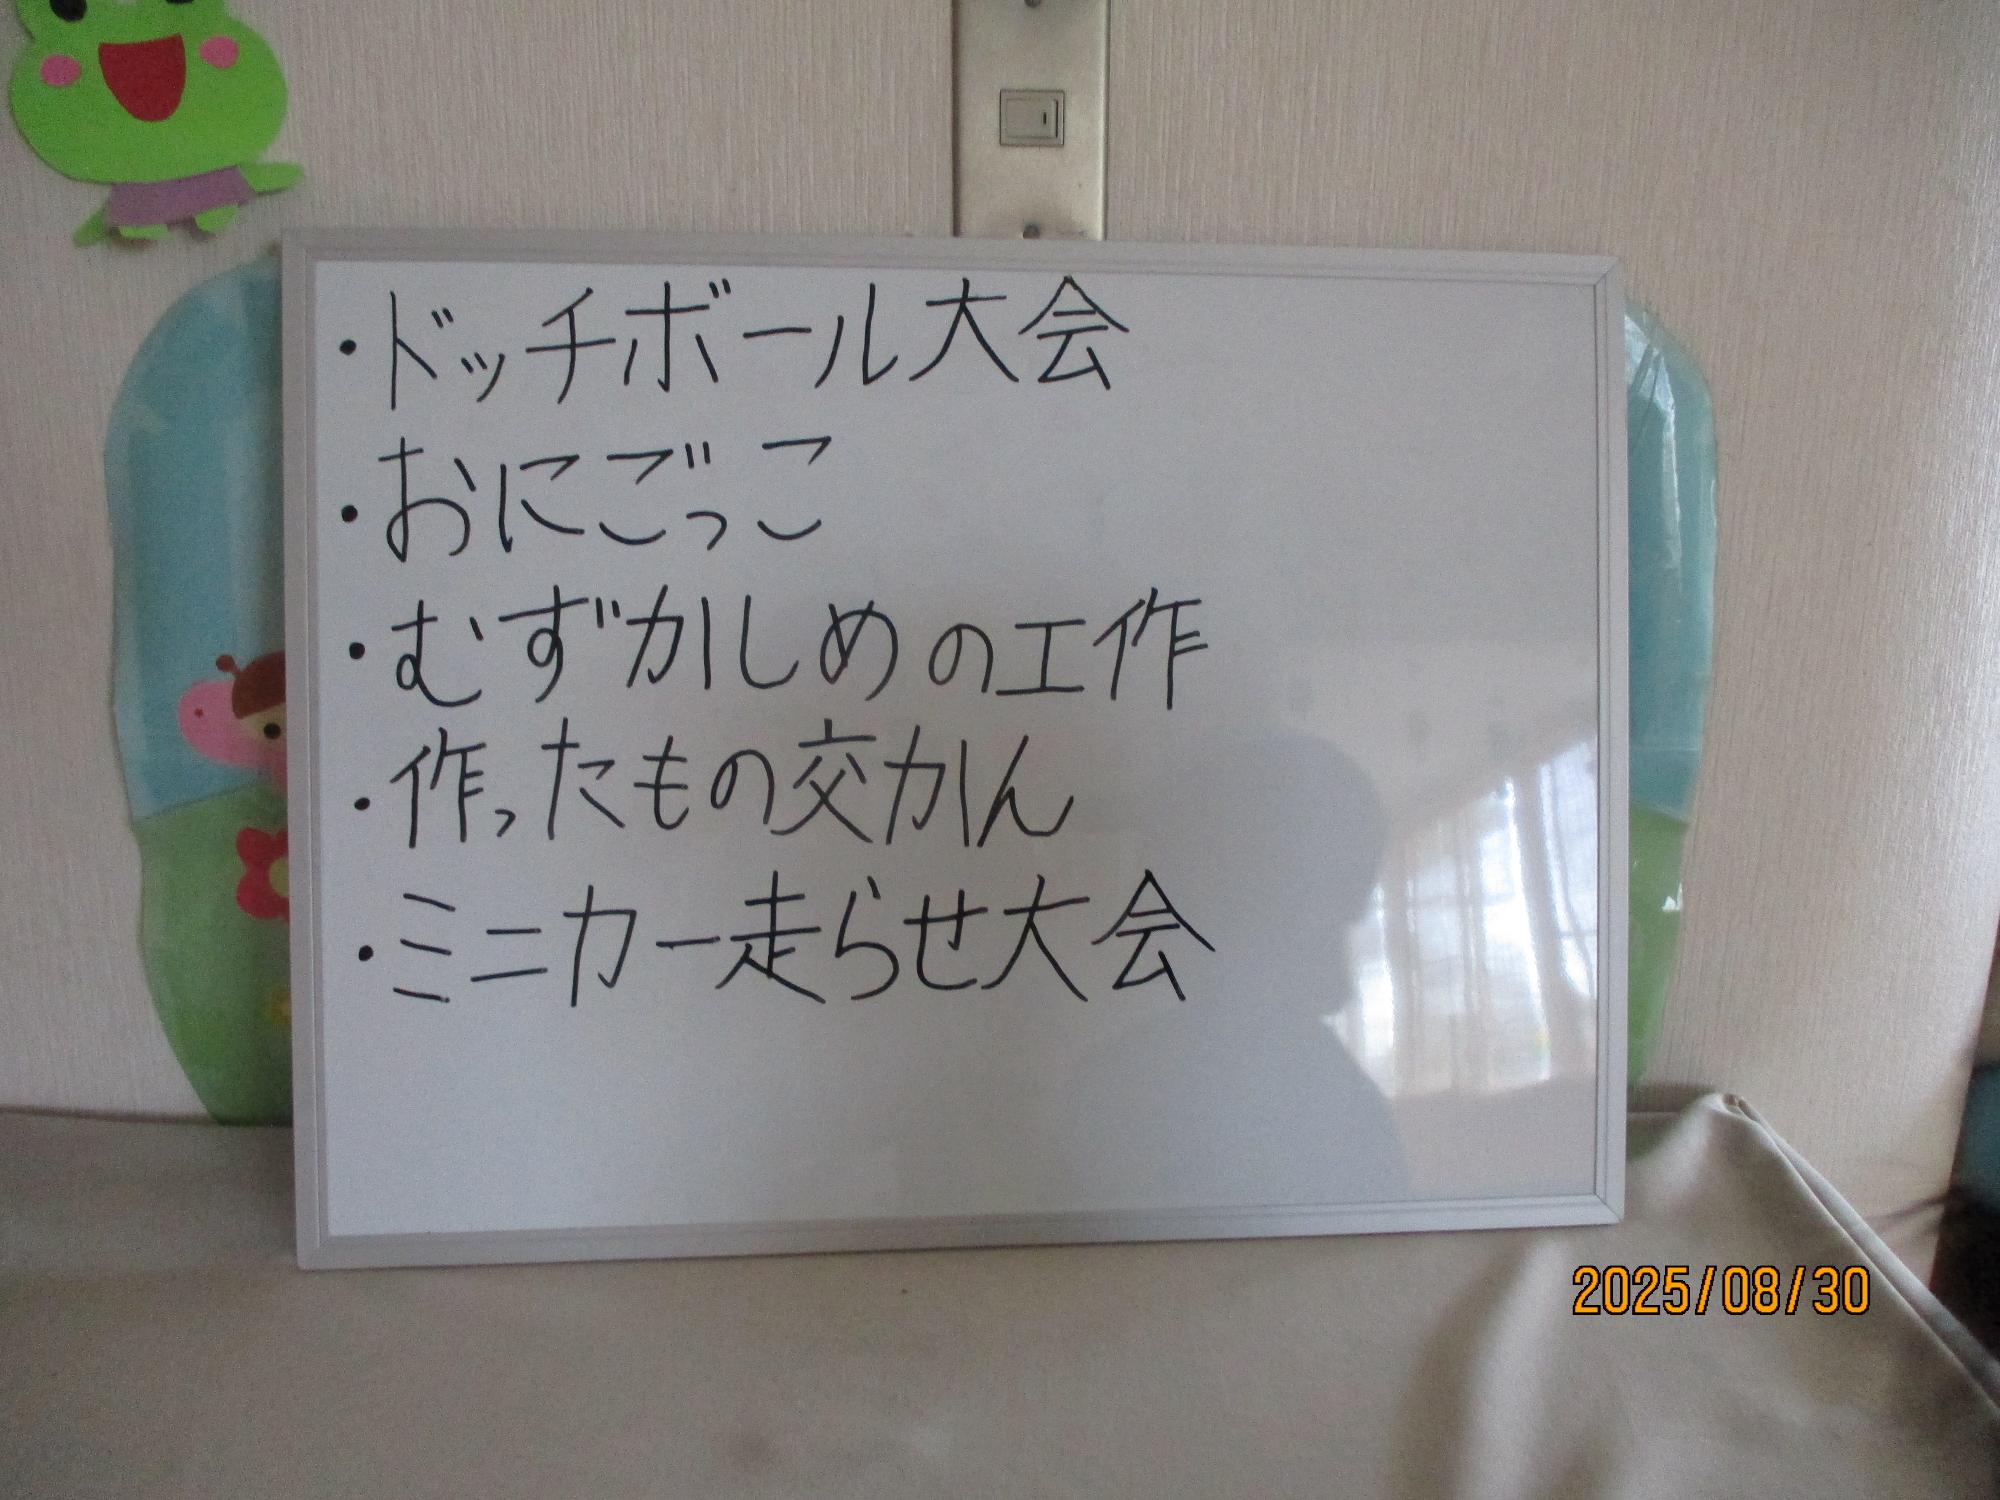 ・ドッチボール大会
・おにごっこ
・むずかしめの工作
・作ったもの交かん
・ミニカー走らせ大会
2025/08/30